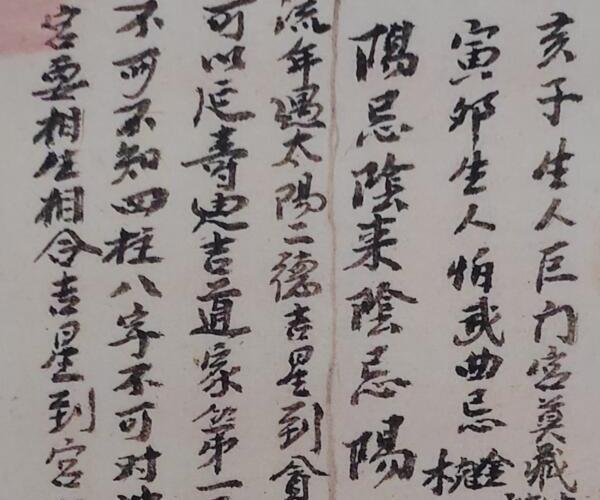 亥子生人巨门宫莫藏
寅卯生人怕武曲忌
陽忌陰来陰忌陽
流年遇太陽二德吉星到
可以延寿迎吉道家第一
不可不知四柱八字不可对
宫要相生相合吉星到宫